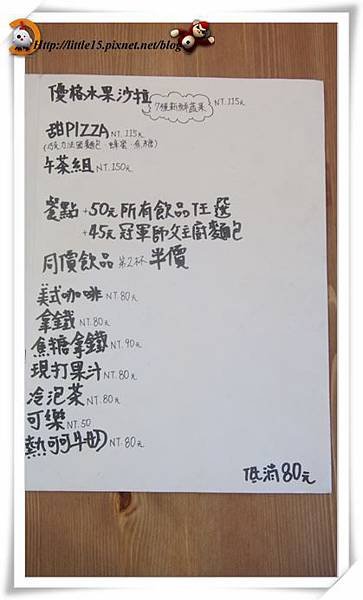 Http://little15.pixnet.net/blog
優格水果沙拉 NT.115元
7種新鮮蔬菜
甜PIZZA NT.115元
(巧克力法國麵包、蜂蜜、煮糖)
午茶組 NT.150元
餐點+50元所有飲品任選
+45元冠軍師父主廚麵包
同價飲品第2杯半價
美式咖啡 NT.80元
拿鐵 NT.80元
焦糖拿鐵 NT.90元
現打果汁 NT.80元
冷泡茶 NT.80元
可樂 NT.50
熱可可牛奶 NT.80元
低消80元